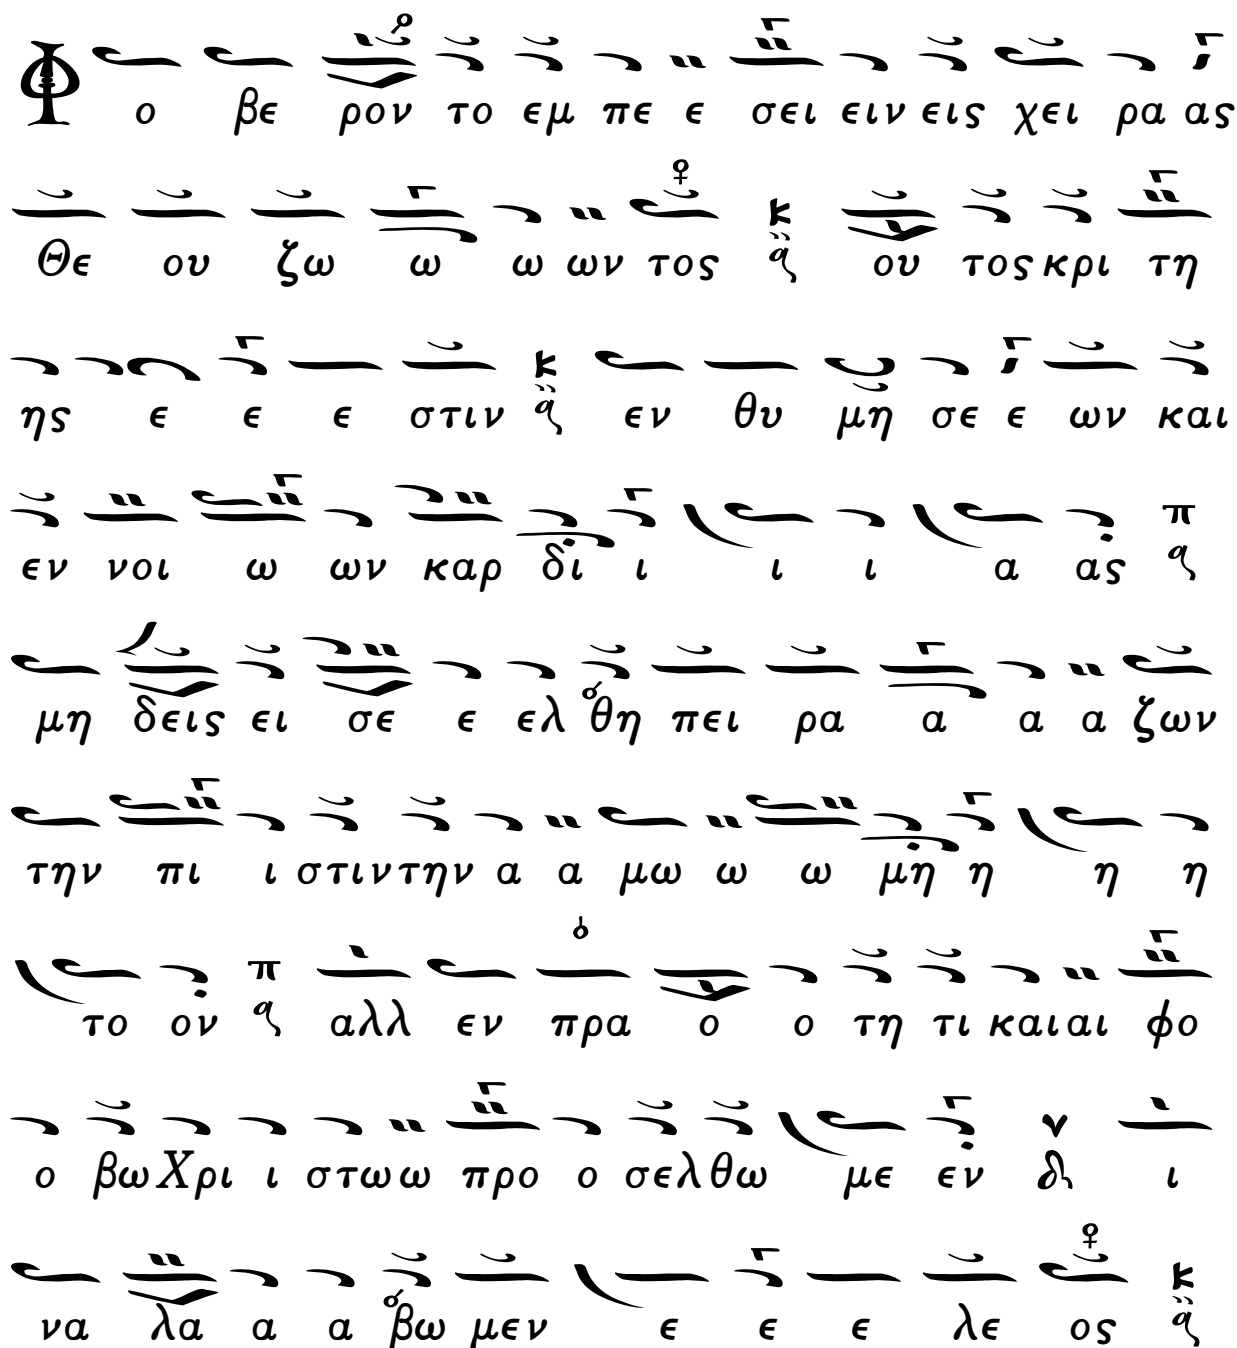 Φ ο βε ρον το εμ πε ε σει ειν εις χει ρα ας
Θε ου ζω ω ω ων τος ου τος κρι τη
ης ε ε ε στιν εν θυ μη σε ε ων και
εν νοι ω ων καρ δι ι ι ι α ας
μη δεις ει σε ε ελ θη πει ρα α α α ζων
την πι ι στιν την α α μω ω ω μη η η η
το ον αλλ εν πρα ο ο τη τι και αι φο
ο βω Χρι ι στω ω προ ο σελ θω με εν ι
να λα α α βω μεν ε ε ε λε ος